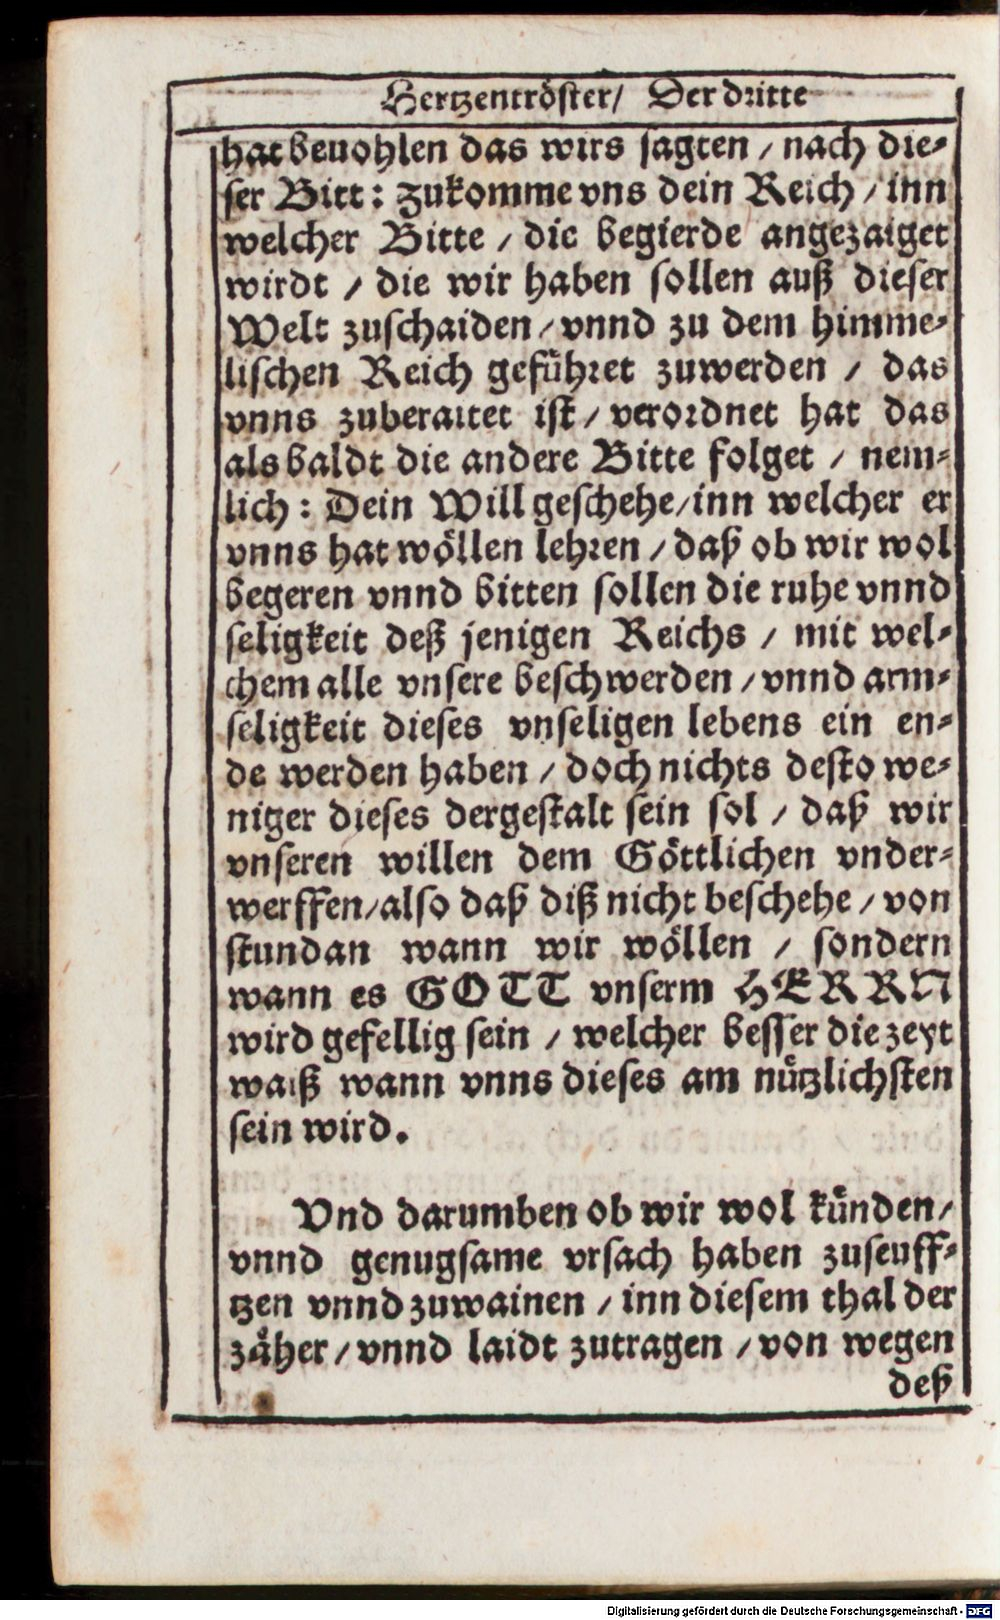 Hertzentröster/ Der dritte
hat beuohlen das wirs sagten / nach die-
ser Bitt: zukomme vns dein Reich / inn
welcher Bitte / die begierde angezaiget
wirdt / die wir haben sollen auß dieser
Welt zuschaiden / vnnd zu dem himme-
lischen Reich geführet zuwerden / das
vnns zuberaitet ist / verordnet hat das
als baldt die andere Bitte folget / nem-
lich: Dein Will geschehe / inn welcher er
vnns hat wöllen lehren / daß ob wir wol
begeren vnnd bitten sollen die ruhe vnnd
seligkeit deß jenigen Reichs / mit wel-
chem alle vnsere beschwerden / vnnd arm-
seligkeit dieses vnseligen lebens ein en-
de werden haben / doch nichts desto we-
niger dieses dergestalt sein sol / daß wir
vnseren willen dem Göttlichen vnder-
werffen / also daß diß nicht beschehe / von
stundan wann wir wöllen / sondern
wann es GOTT vnserm HERRN
wird gefellig sein / welcher besser die zeyt
waiß wann vnns dieses am nützlichsten
sein wird.
Vnd darumben ob wir wol künden /
vnnd genugsame vrsach haben zuseuff-
tzen vnnd zuwainen / inn diesem thal der
zäher / vnnd laidt zutragen / von wegen
deß
Digitalisierung gefördert durch die Deutsche Forschungsgemeinschaft - DFG